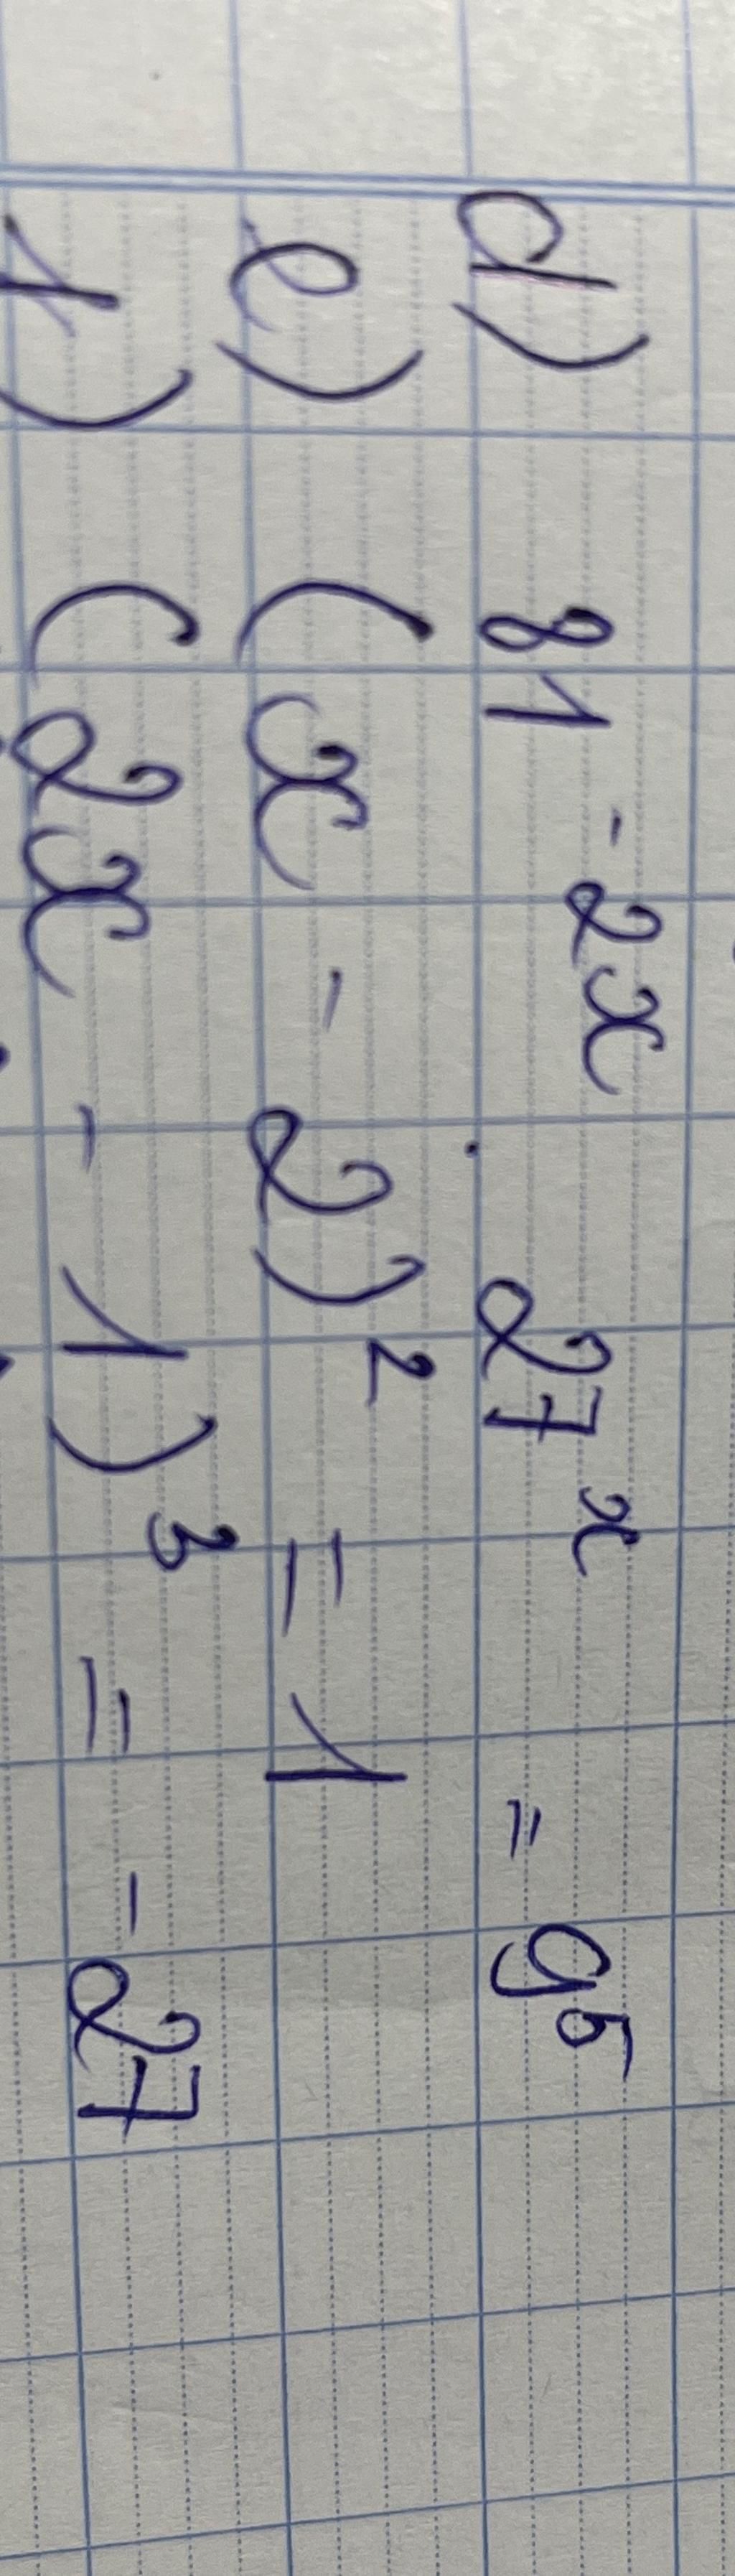 d) 81^{-2x} . 27^{x} = 9^{5}
e) (x - 2)^{2} = 1
f) (2x - 1)^{3} = -27